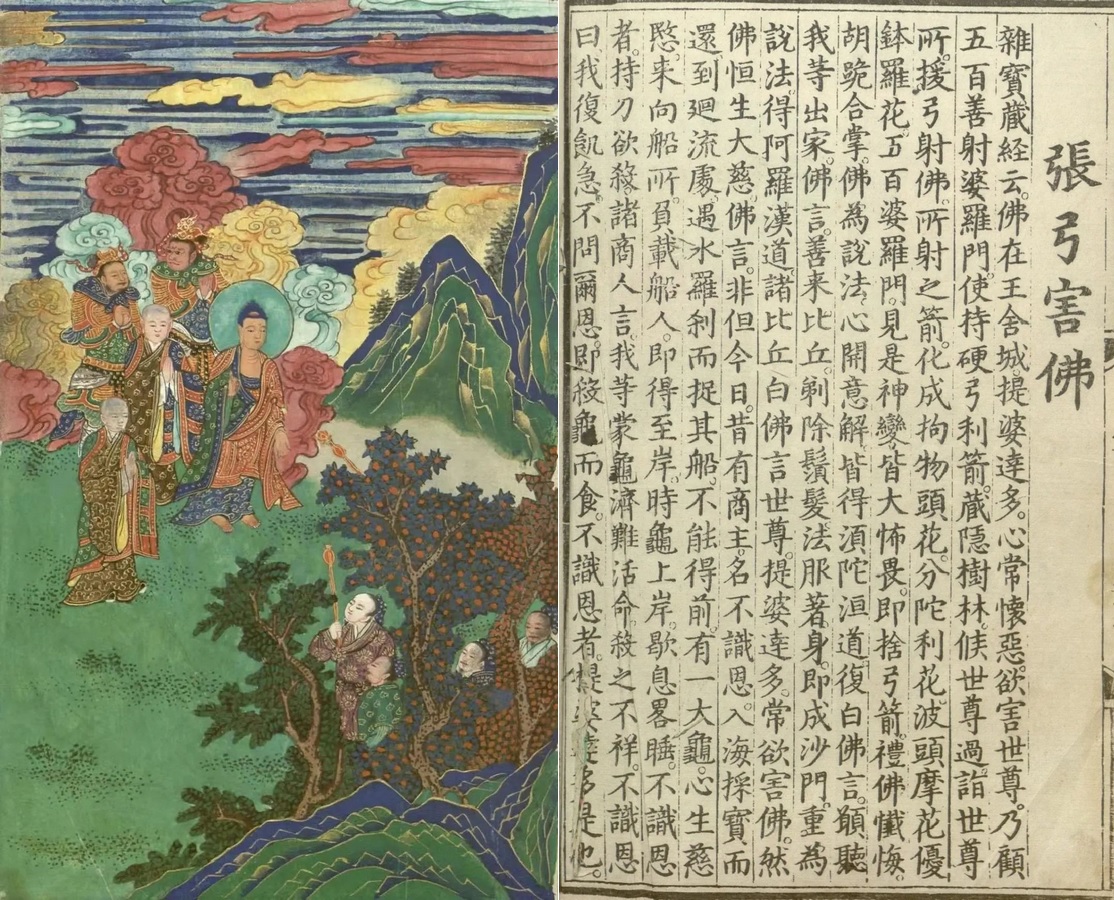 張弓害佛
雜寶藏経云。佛在王舍城。提婆達多。心常懷惡。欲害世尊。乃顧
五百善射婆羅門。使持硬弓利箭。藏隱樹林。候世尊過。詣世尊
所。援弓射佛。所射之箭。化成拘物頭花。分陀利花。波頭摩花。優
鉢羅花。五百婆羅門。見是神變。皆大怖畏。即捨弓箭。禮佛懺悔。
胡跪合掌。佛為說法。心開意解。皆得須陀洹道。復白佛言。願聽
我等出家。佛言。善来比丘。剃除鬚髮。法服著身。即成沙門。重為
說法。得阿羅漢道。諸比丘白佛言。世尊。提婆達多。常欲害佛。然
佛恒生大慈。佛言。非但今日。昔有商主。名不識恩。入海採寶。而
還到廻流處。遇水羅刹。而捉其船。不能得前。有一大龜。心生慈
愍。来向船所。負載船人。即得至岸。時龜上岸。歇息畧睡。不識恩
者。持刀欲殺。諸商人言。我等蒙龜濟難活命。殺之不祥。不識恩
曰。我復飢急。不問爾恩。即殺龜而食。不識恩者。提婆達多是也。